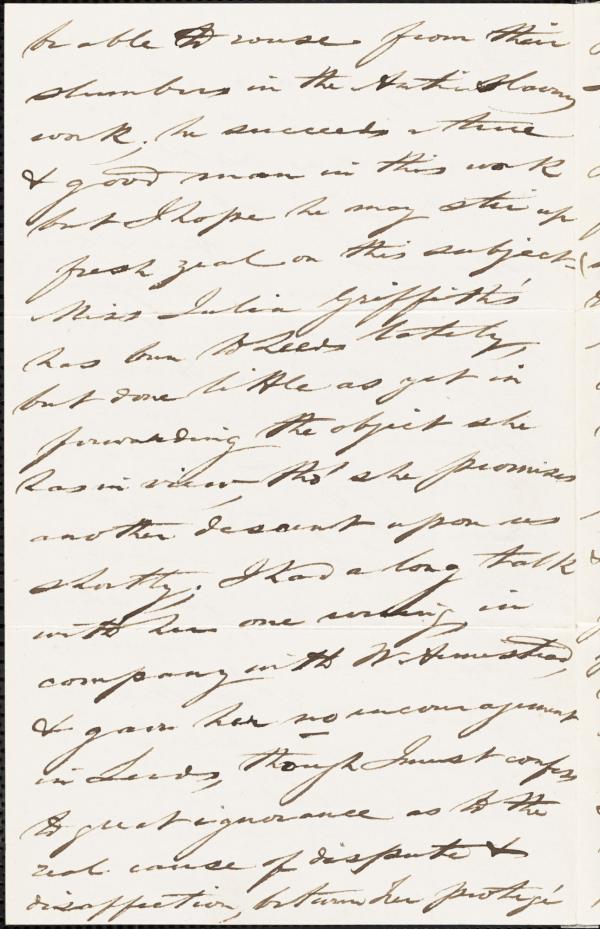 be able to rouse from their
slumbers in the Anti Slavery
work, he succeeds a true
& good man in this work
but I hope he may stir up
fresh zeal on this subject -
Miss Julia Griffiths
has been to Leeds lately,
but done little as yet in
forwarding the object she
has in view, tho' she promises
another descent upon us
shortly. I had a long talk
with her one evening in
company with W. Armistead,
& gave her no encouragement
in Leeds, though I must confess
to great ignorance as to the
real cause of dispute &
disaffection, between her protegé